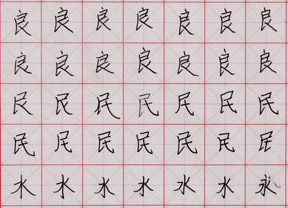 良良良良良良良
良良良良良良良
民民民民民民民
民民民民民民民
水水水水水水永